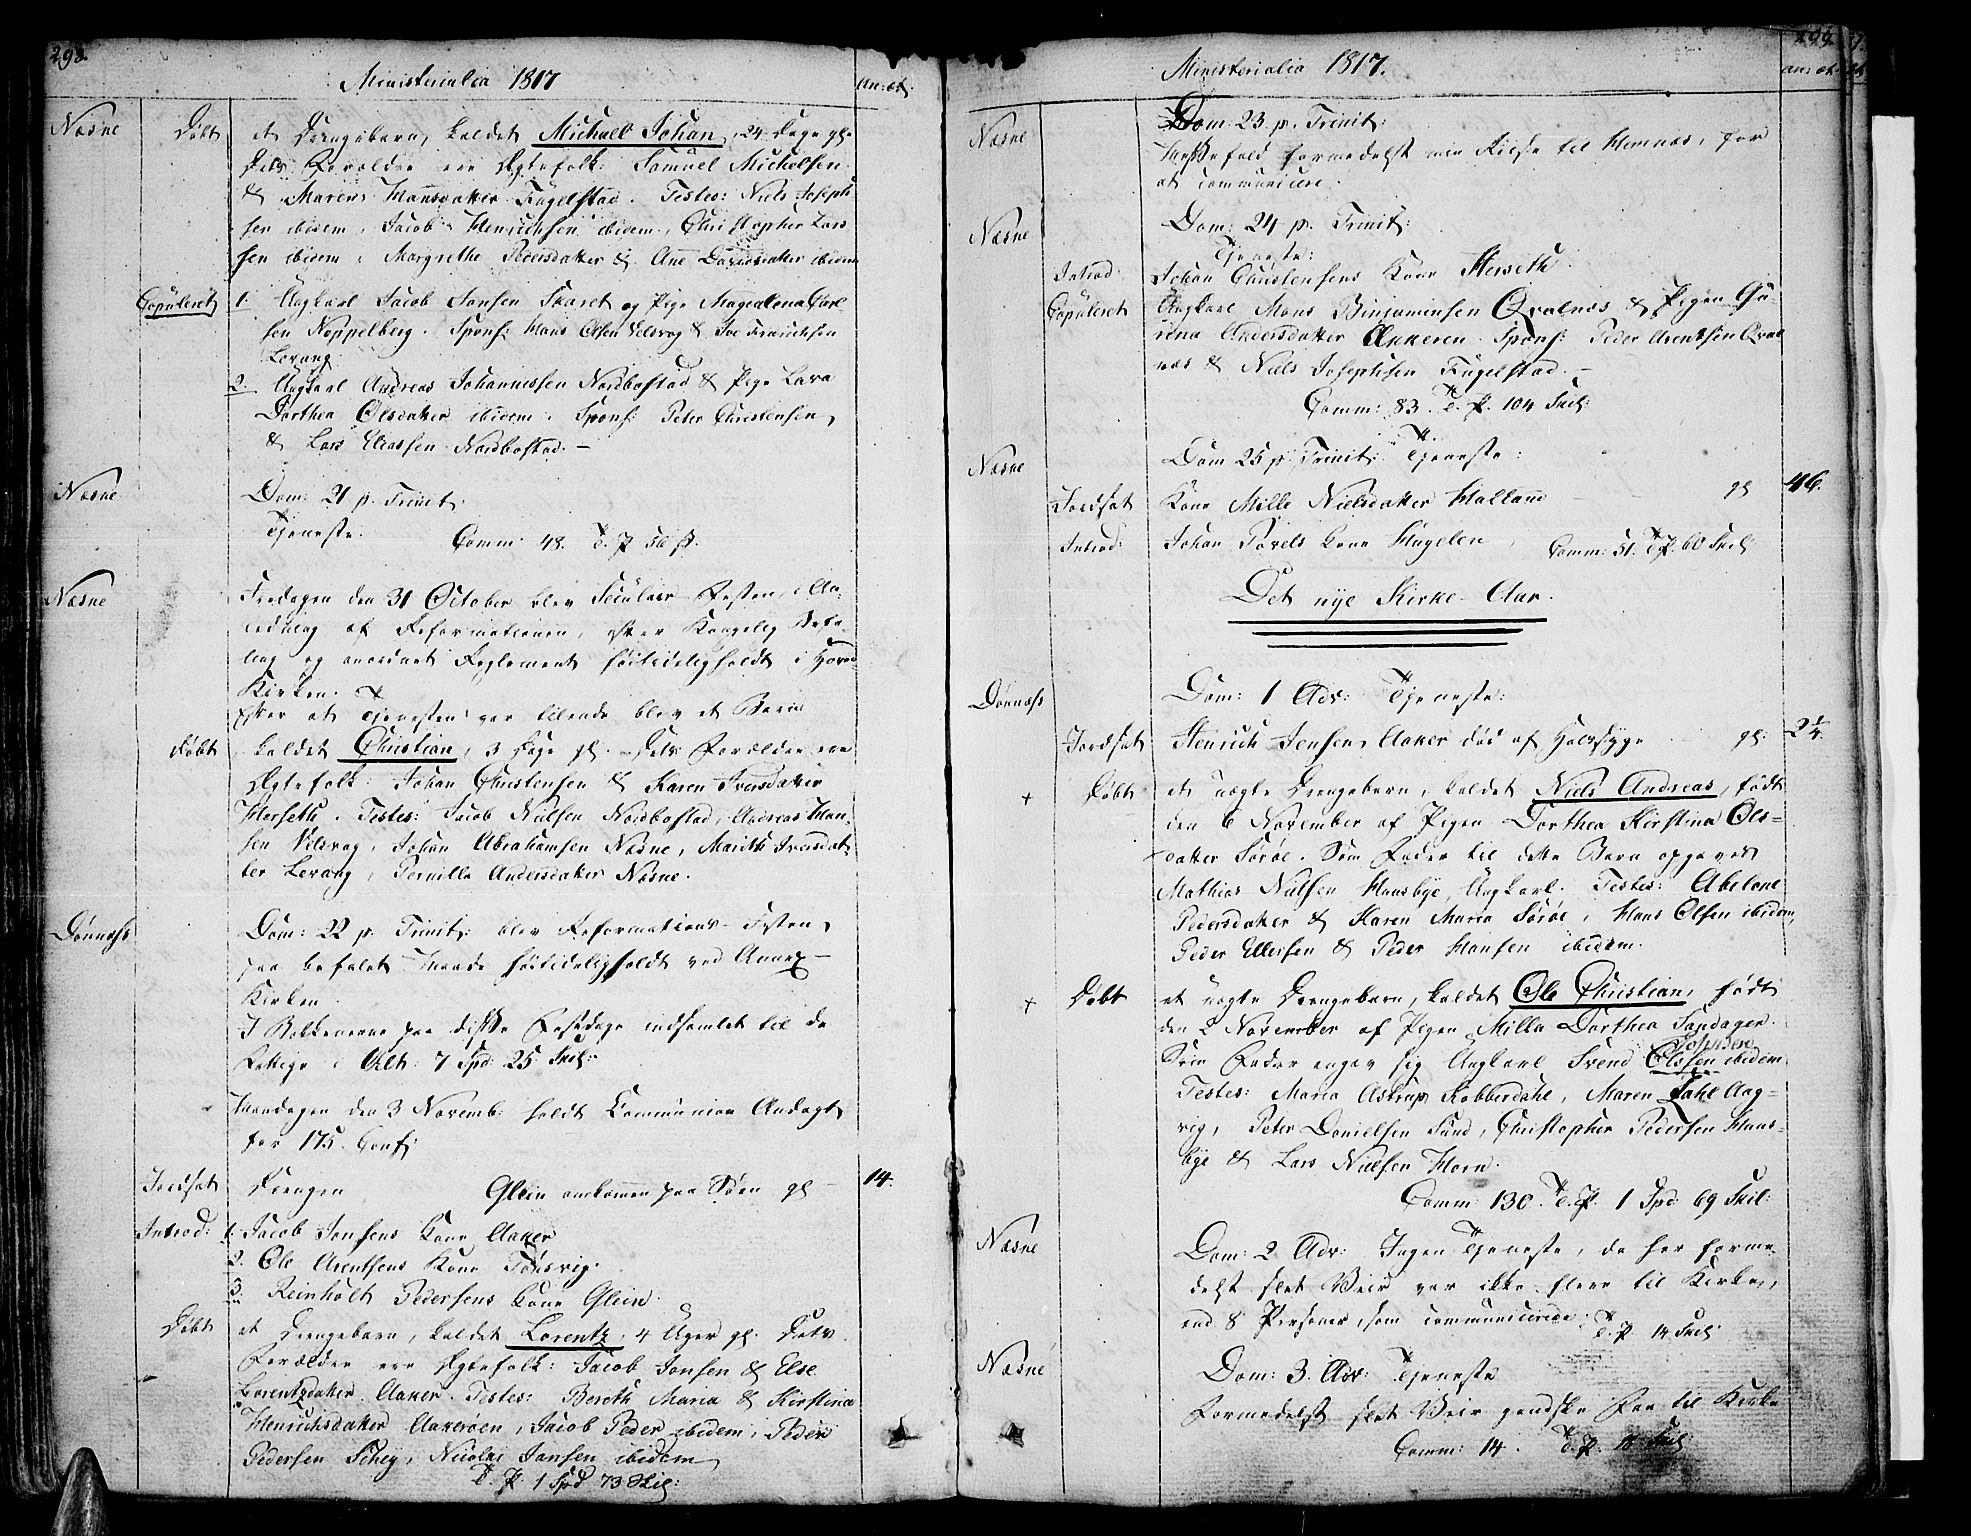 298.
Ministerialia 1817
An: æt.
Næsne Døbt et Drengebarn, kaldet Michael Johan, 24 Dage gl.
Dets Forældre ere Ægtefolk: Samuel Michelsen
& Maren Hansdatter Fugelstad. Testes: Niels Joseph-
sen ibidem, Jacob Henrichsen ibidem, Christopher Lars
sen ibidem, Margrethe Pedersdatter & Ane Davidsdatter ibidem
Copuleret 1. Ungkarl Jacob Jonsen Skaret og Pige Magdalena Carl-
sen Noppelberg. Spons: Hans Olsen Velsvog & Joe Henrichsen
Levang.
2. Ungkarl Andreas Johannessen Nordbostad & Pige Lava
Dorthea Olsdatter ibidem. Spons: Peter Christensen
& Lars Eliassen Nordbostad. –
Næsne Dom: 21 p. Trinit:
Tjeneste. Comm: 48. T. P. 56 s.
Næsne Fredagen den 31 October blev Seculair-Festen i An-
ledning af Reformationen, efter Kongelig Befa-
ling og anordnet Reglement høitideligholdt i Hoved
Kirken.
Efter at Tjenesten var tilende blev et Barn
Døbt kaldet Christian, 3 Dage gl. Dets Forældre ere
Ægtefolk: Johan Christensen & Karen Iversdatter
Herseth. Testes: Jacob Nielsen Nordbostad, Andreas Han-
sen Velsvog, Johan Abrahamsen Næsne, Marith Iversdat-
ter Levang, Pernille Andersdatter Næsne.
Dønnæss Dom: 22 p. Trinit: blev Reformations-Festen,
paa befalet Maade høitideligholdt ved Annex-
Kirken.
I Bækkenerne paa disse Festdage indsamlet til de
Fattige i Alt: 7 Spd 25 Skil:
Mandagen den 3 Novemb: holdt Communion Andagt
for 175. Conf:
Jordfæt Drengen Glein omkommen paa Søen gl – 14.
Introd: 1. Jacob Jonsens Kone Aaker
2. Ole Arentsens Kone Tønsvig.
3. Reinholt Pedersens Kone Glein.
Døbt et Drengebarn, kaldet Lorentz, 4 Uger gl. Dets
Forældre ere Ægtefolk: Jacob Jonsen & Else
Lorentzdatter Aaker. Testes: Bereth Maria & Kirstina
Henrichsdatter Aakerøen, Jacob Peder ibidem, Peder
Pedersen Schey, Nicolai Jansen ibidem
T. P. 1 Spd 73 Skil:
299.
Ministerialia 1817.
An: æt.
Næsne Dom: 23. p. Trinit:
Messefald formedelst min Reise til Hemnæs, for
at communicere.
Næsne Dom: 24 p. Trinit:
Tjeneste:
Introd: Johan Christensens Kone Herseth.
Copuleret Ungkarl Mons Binjaminsen Qvalnæs & Pigen Gu-
rina Andersdatter Ankeren. Spons: Peder Arentsen Qval
næs & Niels Josephsen Fugelstad. –
Comm: 83. T. P. 104 Skil:
Næsne Dom 25 p. Trinit: Tjeneste:
Jordfæt Kone Mille Nielsdatter Halland – gl 46.
Introd: Johan Povels Kone Hugelen, Comm: 51. T. P. 60 Skil:
Det nye Kirke-Aar.
Dønnæss Dom: 1 Adv: Tjeneste:
Jordfæt Henrich Jensen Aaker død af Halssyge gl: 2 1/4.
+ Døbt et uægte Drengebarn, kaldet Niels Andreas, født
den 6 November af Pigen Dorthea Kirstina Ols-
datter Sørøe. Som Fader til dette Barn opgaves
Mathias Nielsen Hansbye, Ungkarl. Testes: Abelone
Pedersdatter & Karen Maria Sørøe, Hans Olsen ibidem,
Peder Ellersen & Peder Hansen ibidem.
+ Døbt et uægte Drengebarn, kaldet Ole Christian, født
den 2 November af Pigen Milla Dorthea Sandager.
Johnsen
Som Fader angav sig Ungkarl Svend Olssen ibidem
Testes: Maria Astrup Kobberdahl, Maren Dahl Aag-
vig, Peter Danielsen Sund, Christopher Pedersen Hans-
bye & Lars Nielsen Horn.
Comm: 130. T. P. 1 Spd 69 Skil:
Næsne Dom: 2 Adv: Ingen Tjeneste, da her forme-
delst slet Veir var ikke flere til Kirke,
end 8 Personer, som communicerede.
T. P. 14 Skil:
Næsne Dom: 3. Adv: Tjeneste
Formedelst slet Veir gandske Faa til Kirke
Comm: 14. T. P. 18 Skil: